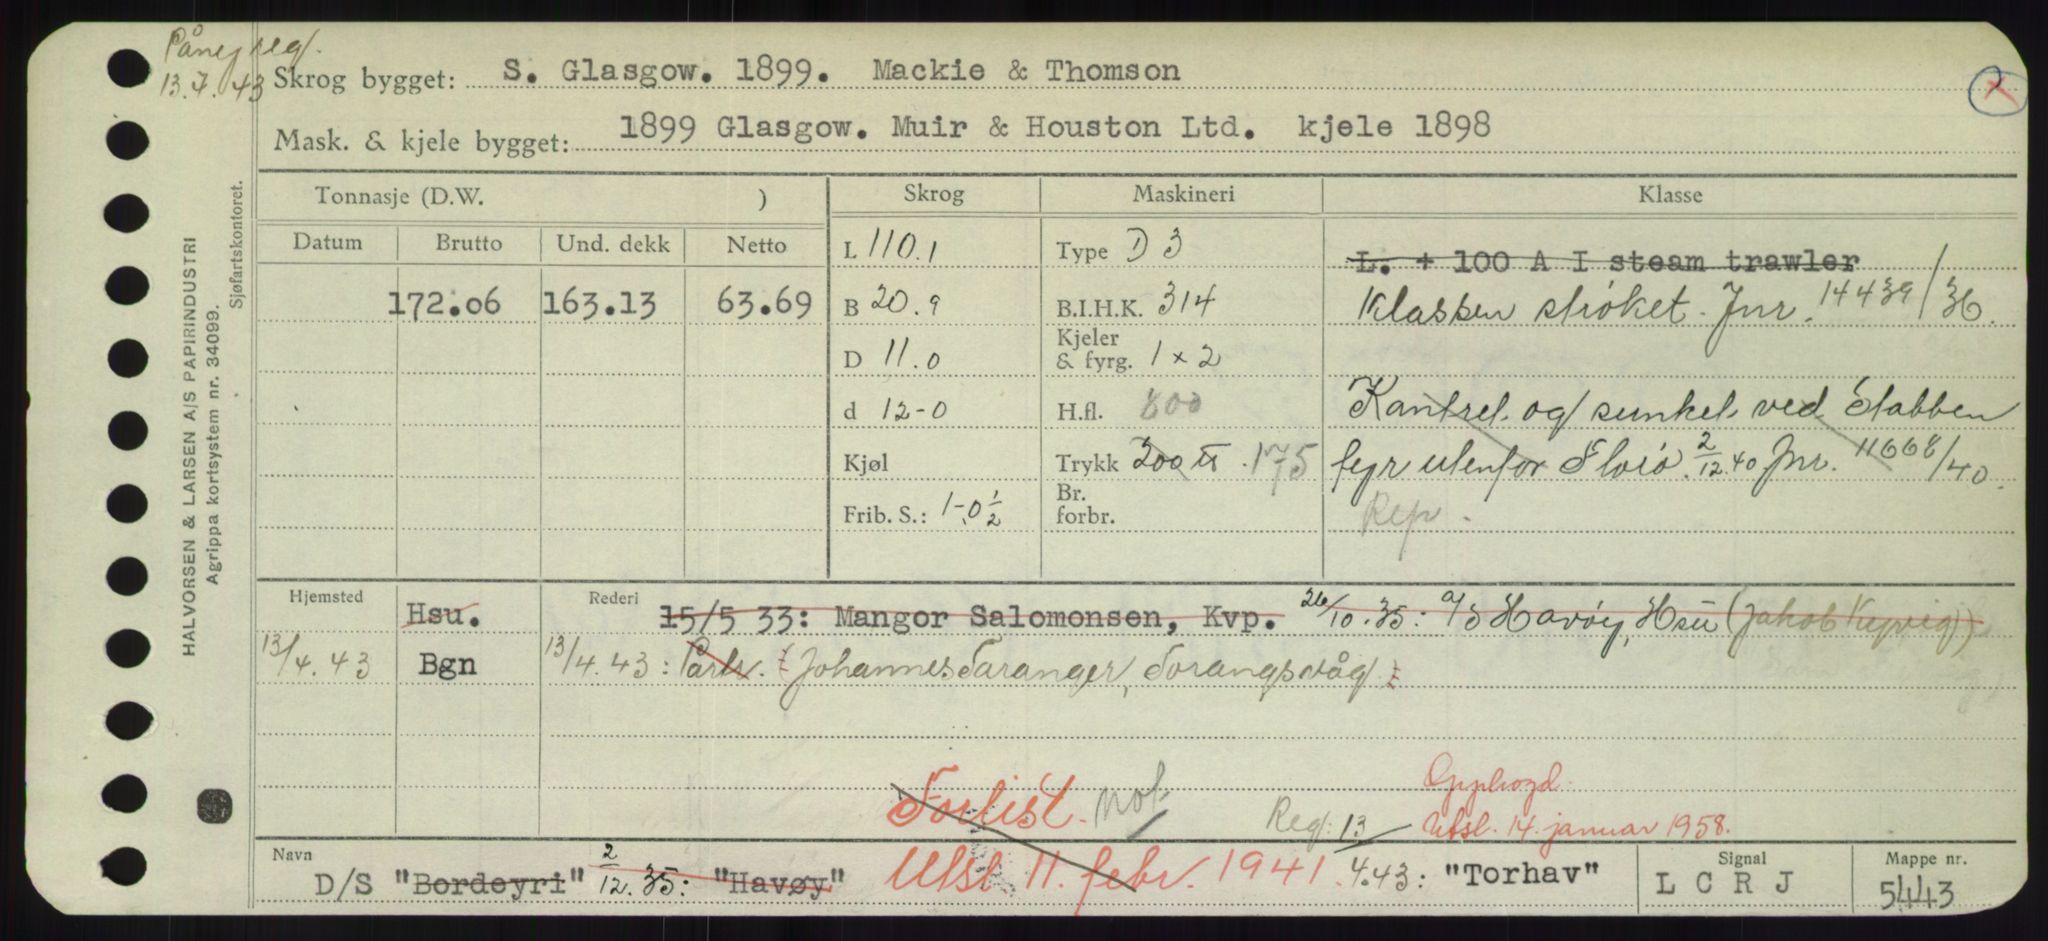 Påny reg.
13.7.43
Skrog bygget: S. Glasgow. 1899. Mackie & Thomson
Mask. & kjele bygget: 1899 Glasgow. Muir & Houston Ltd. kjele 1898
HALVORSEN & LARSEN A/S PAPIRINDUSTRI
Agrippa kortsystem nr. 34099.
Sjøfartskontoret.
Tonnasje (D.W. ) Skrog Maskineri Klasse
Datum Brutto Und. dekk Netto
172.06 163.13 63.69
L 110.1
B 20.9
D 11.0
d 12-0
Kjøl
Frib. S.: 1-0 1/2
Type D 3
B.I.H.K. 314
Kjeler
& fyrg. 1 x 2
H.fl. 800
Trykk 200 175
Br.
forbr.
L. + 100 A I steam trawler
Klassen strøket. Jnr. 14439/36.
Kantret og sunket ved Stabben
fyr utenfor Florø 2/12.40 Jnr. 11668/40.
Rep.
Hjemsted Hsu. Rederi 15/5 33: Mangor Salomonsen, Kvp. 26/10.35: A/S Havøy, Hsu (Jakob Kyvig)
13/4.43 Bgn 13/4.43: Partr. (Johannes Faranger, Torangsvåg)
Forlist. not
Opphogd.
Reg: 13/ Utsl. 14. januar 1958.
Navn D/S "Bordeyri" 2/12.35: "Havøy" Utsl 11. febr. 1941. 4.43: "Torhav"
Signal L C R J
Mappe nr. 5443